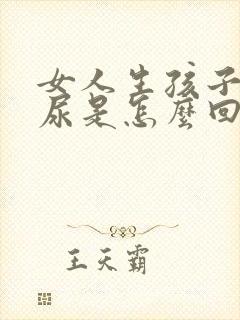 女人生孩子
尿是怎麼回
王天霸